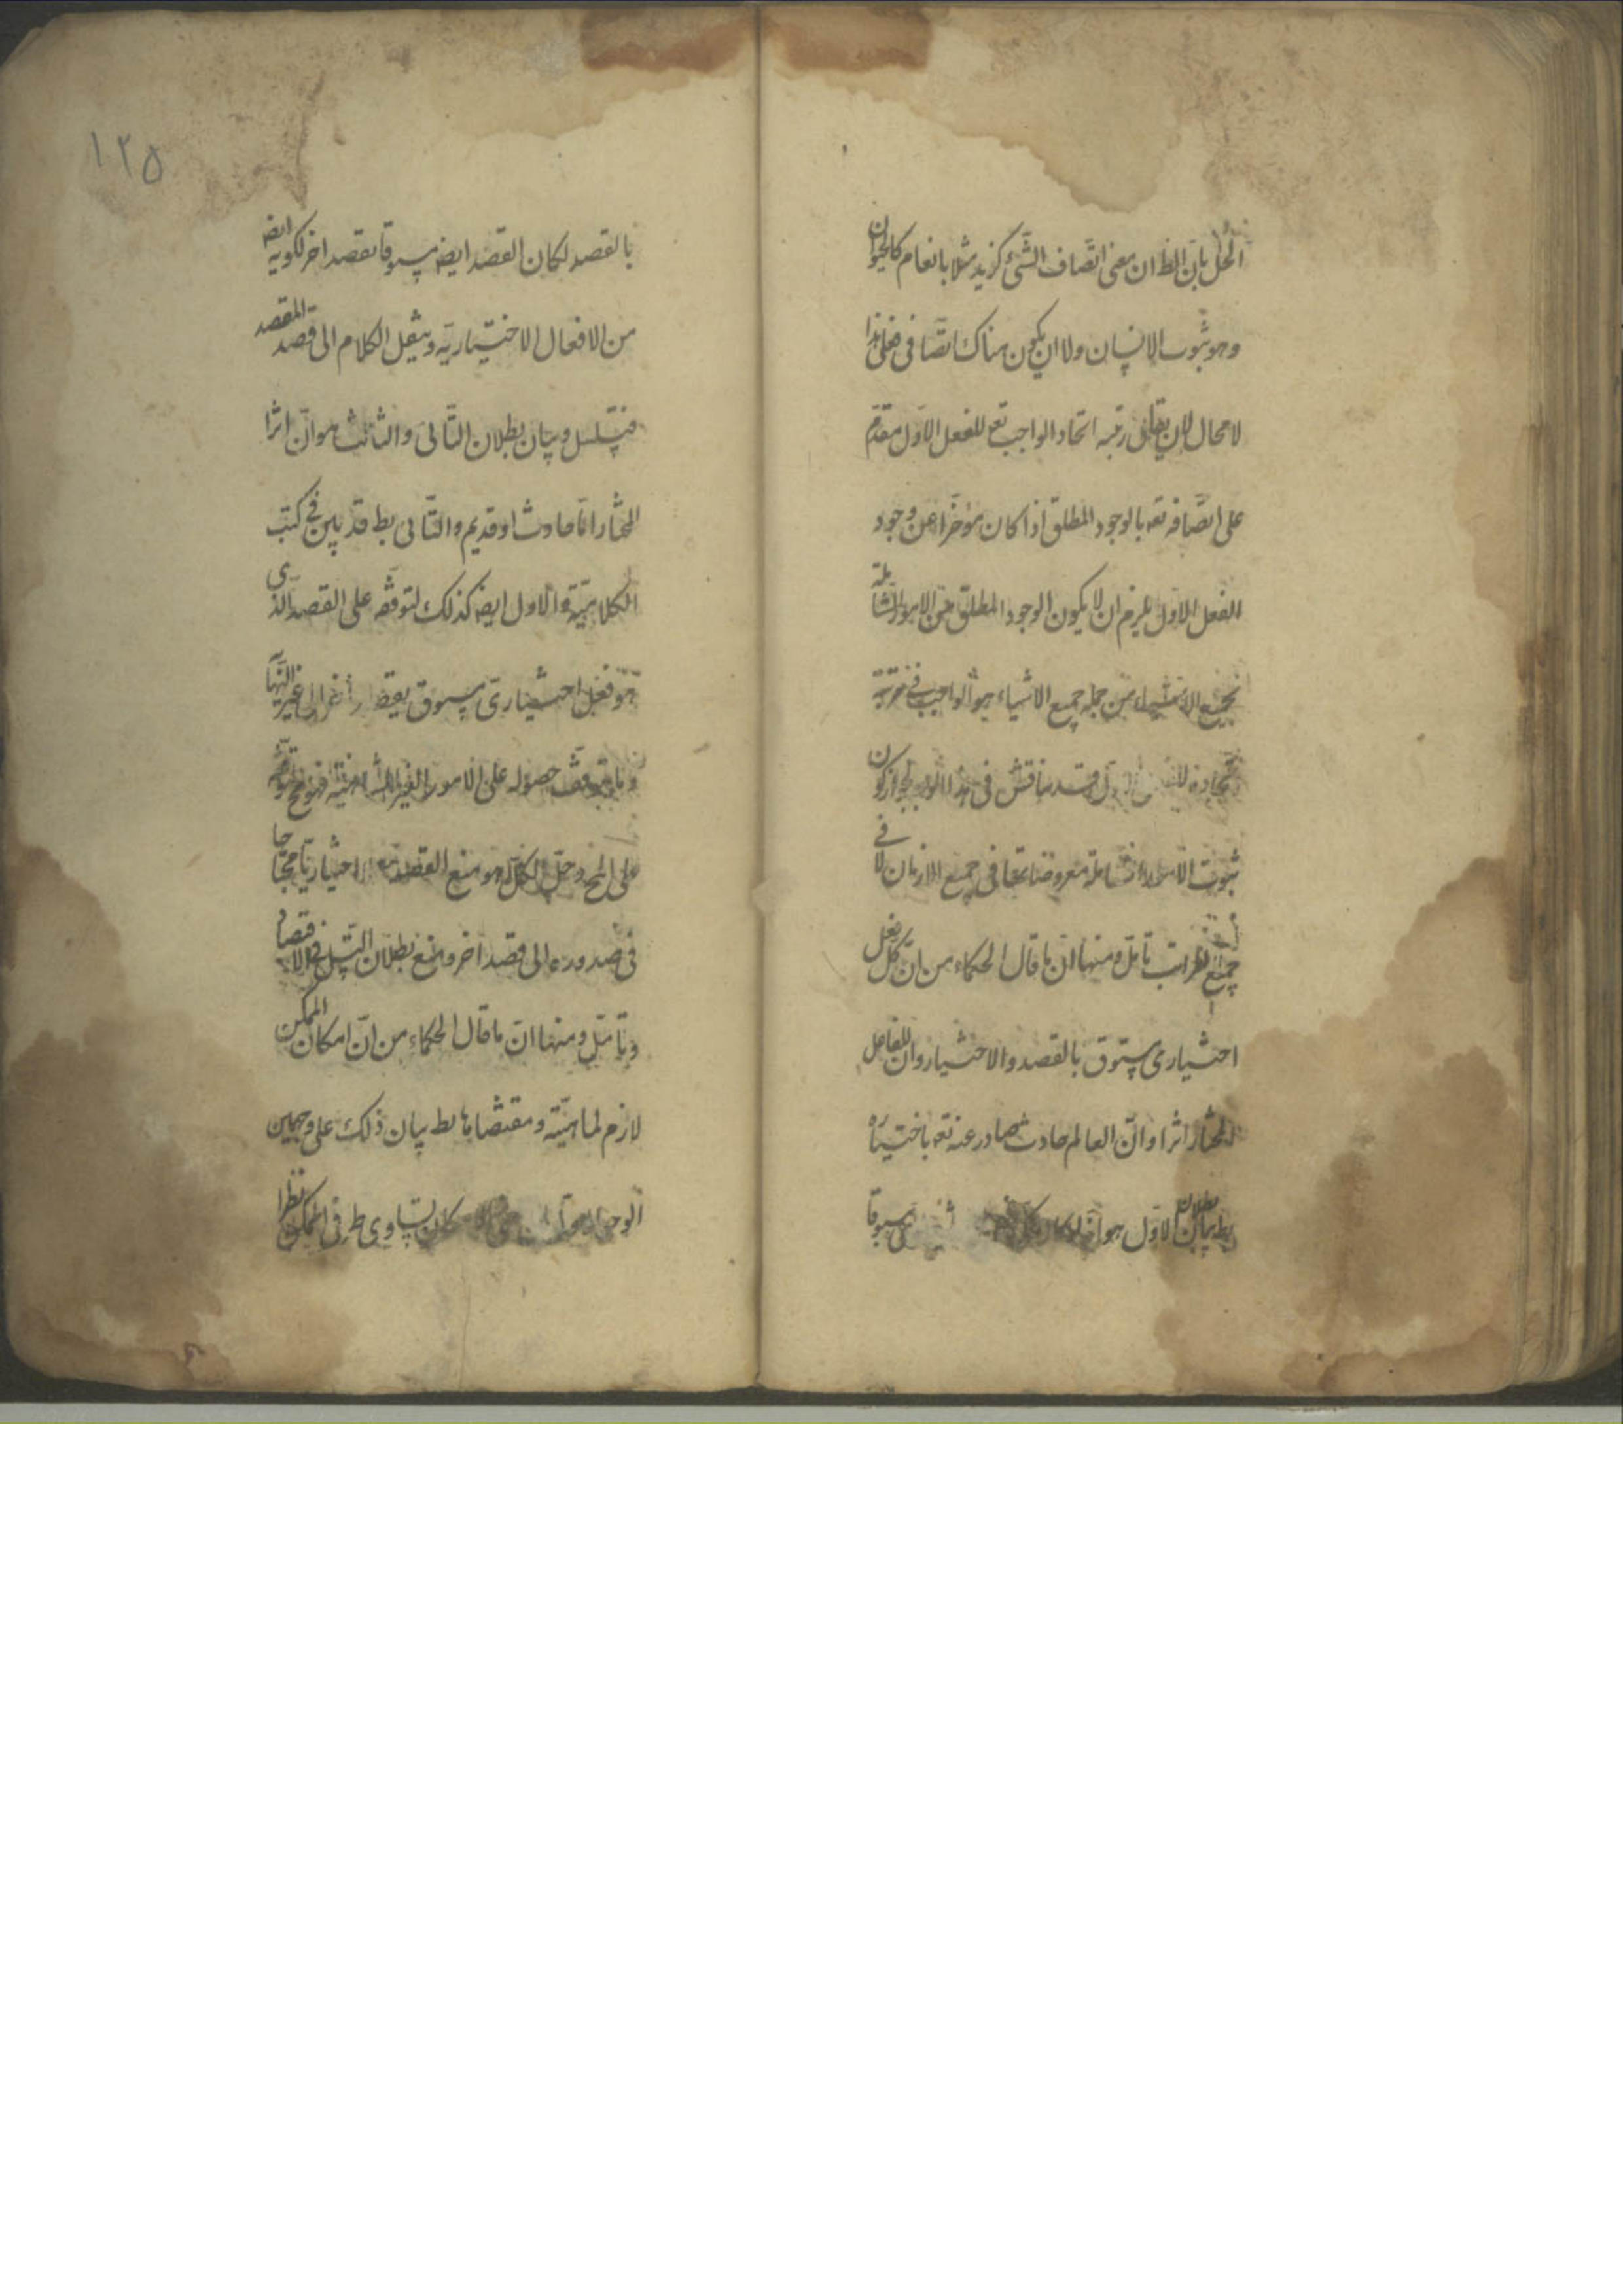 الحل بان الظ ان معنى اتصاف الشئ كزيد مثلا بالعام كالحيوان
وهو ثبوت الانسان ولا ان يكون هناك اتصافى فعلى هذا
لا مجال لان يقال رتبه اتحاد الواجب تعه للفعل الاول مقدم
على اتصافه تعه بالوجود المطلق اذا كان مؤخرا عن وجود
الفعل الاول يلزم ان لا يكون الوجود المطلق من الامور الشاملة
لجميع الاشياء من جمله جميع الاشياء هو الواجب فى مرتبة
اتحاده فى هذا لجواز كون
ثبوت الامور الشاملة معروضاتها فى جميع الازمان لا فى
جميع المراتب تامل ومنها ان ما قال الحكماء من ان كل فعل
اختيارى مسبوق بالقصد والاختيار وان للفاعل
المختار اثرا وان العالم حادث صادر عنه تعه باختياره
بط بيان بطلان الاول هو انه لو كان مسبوقا
١٢٥
بالقصد لكان القصد ايض مسبوقا بقصد اخر لكونه ايض
من الافعال الاختيارية وينقل الكلام الى قصد القصد
فيتسلسل وبيان بطلان الثانى والثالث هو ان اثرا
المختار اما حادث او قديم والثانى بط قد بين فى كتب
الكلامية والاول ايض كذلك لتوقفه على القصد الذى
هو فعل اختيارى مسبوق بقصد الى غير النهاية
وما يتوقف حصوله على الامور الغير المتناهية فهو مح
على المح وحل الكل هو منع القصد اختياريا محتاجا
فى صدوره الى قصد اخر ومنع بطلان التسلسل
وتامل ومنها ان ما قال الحكماء من ان امكان الممكن
لازم لماهيته ومقتضاها بط بيان ذلك على وجهين
الوجه الاول تساوى طرفى الممكن نظرا